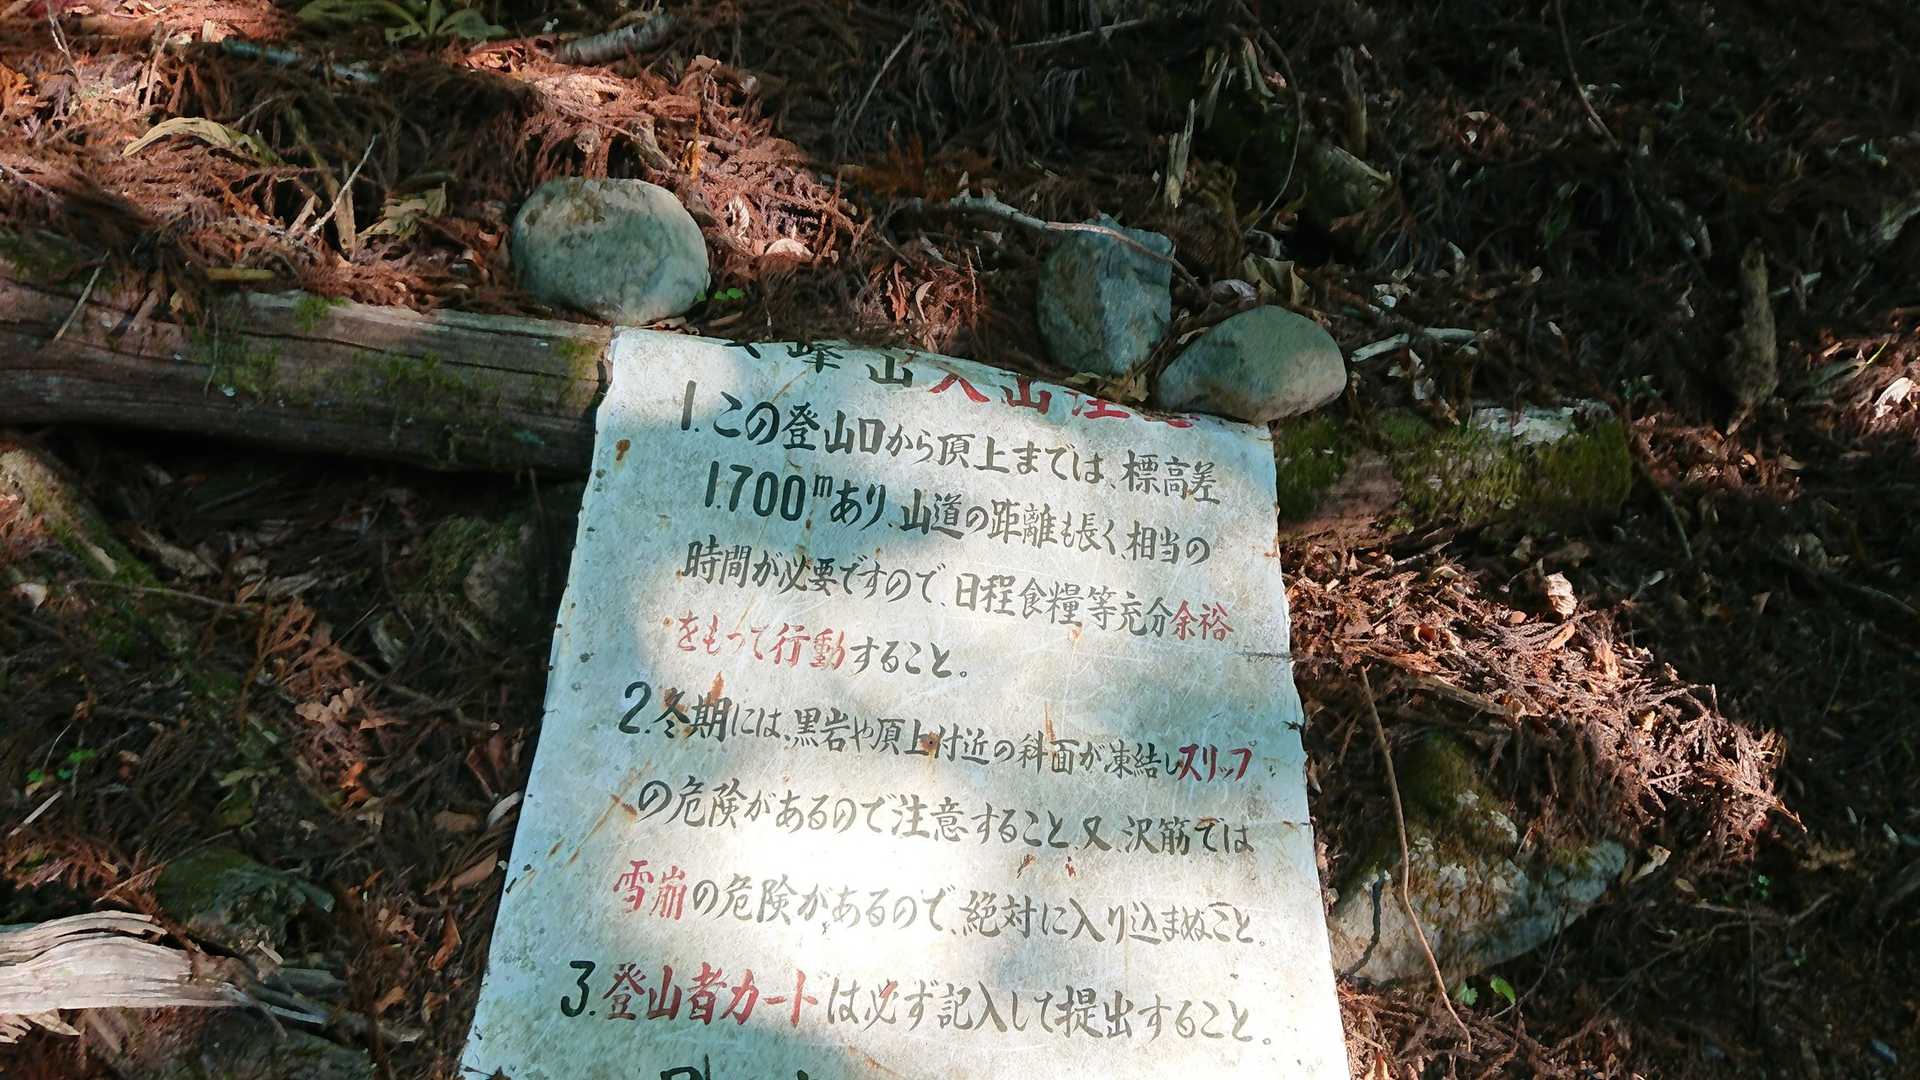 峰山入山注意
1.この登山口から頂上までは、標高差
1.700mあり、山道の距離も長く、相当の
時間が必要ですので、日程食糧等充分余裕
をもって行動すること。
2.冬期には、黒岩や頂上付近の斜面が凍結しスリップ
の危険があるので注意すること、又、沢筋では
雪崩の危険があるので、絶対に入り込まぬこと。
3.登山者カードは必ず記入して提出すること。